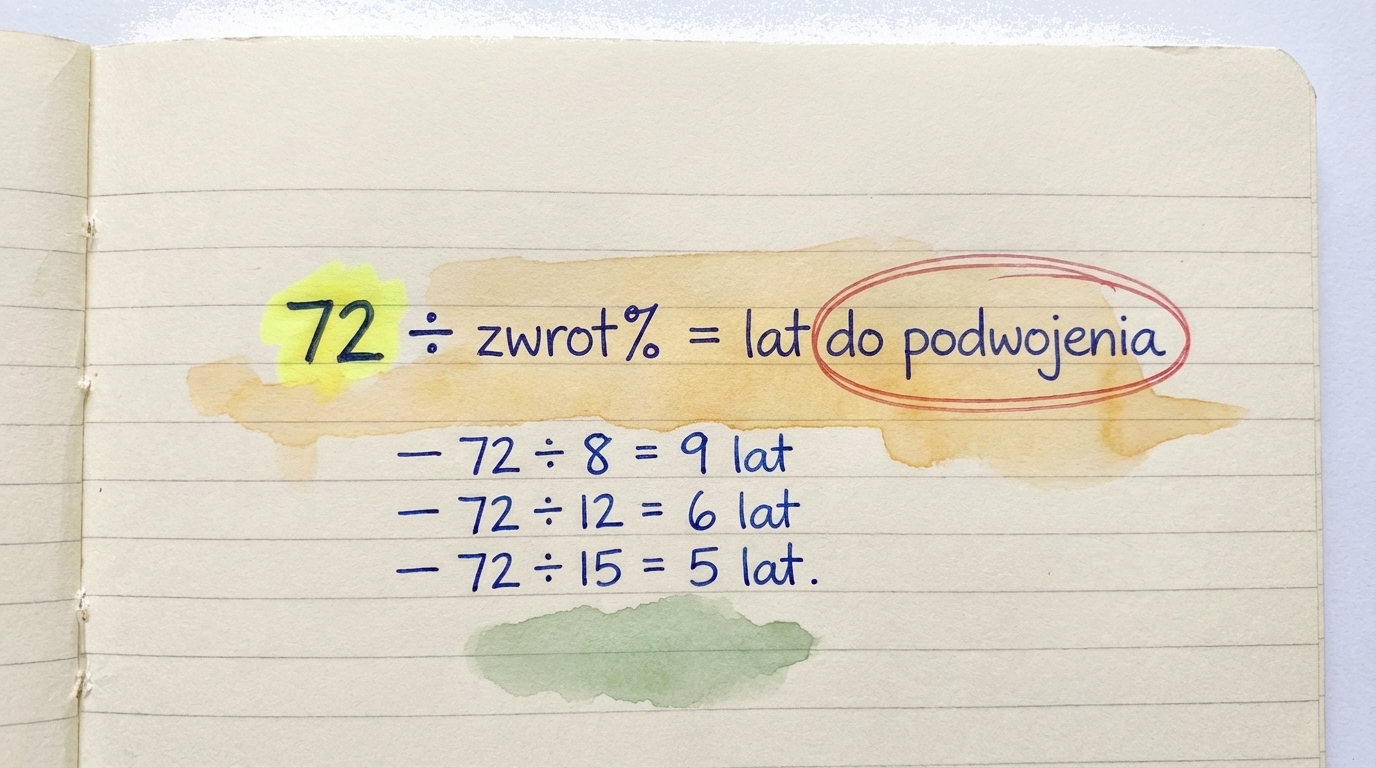 72 ÷ zwrot% = lat do podwojenia
— 72 ÷ 8 = 9 lat
— 72 ÷ 12 = 6 lat
— 72 ÷ 15 = 5 lat.